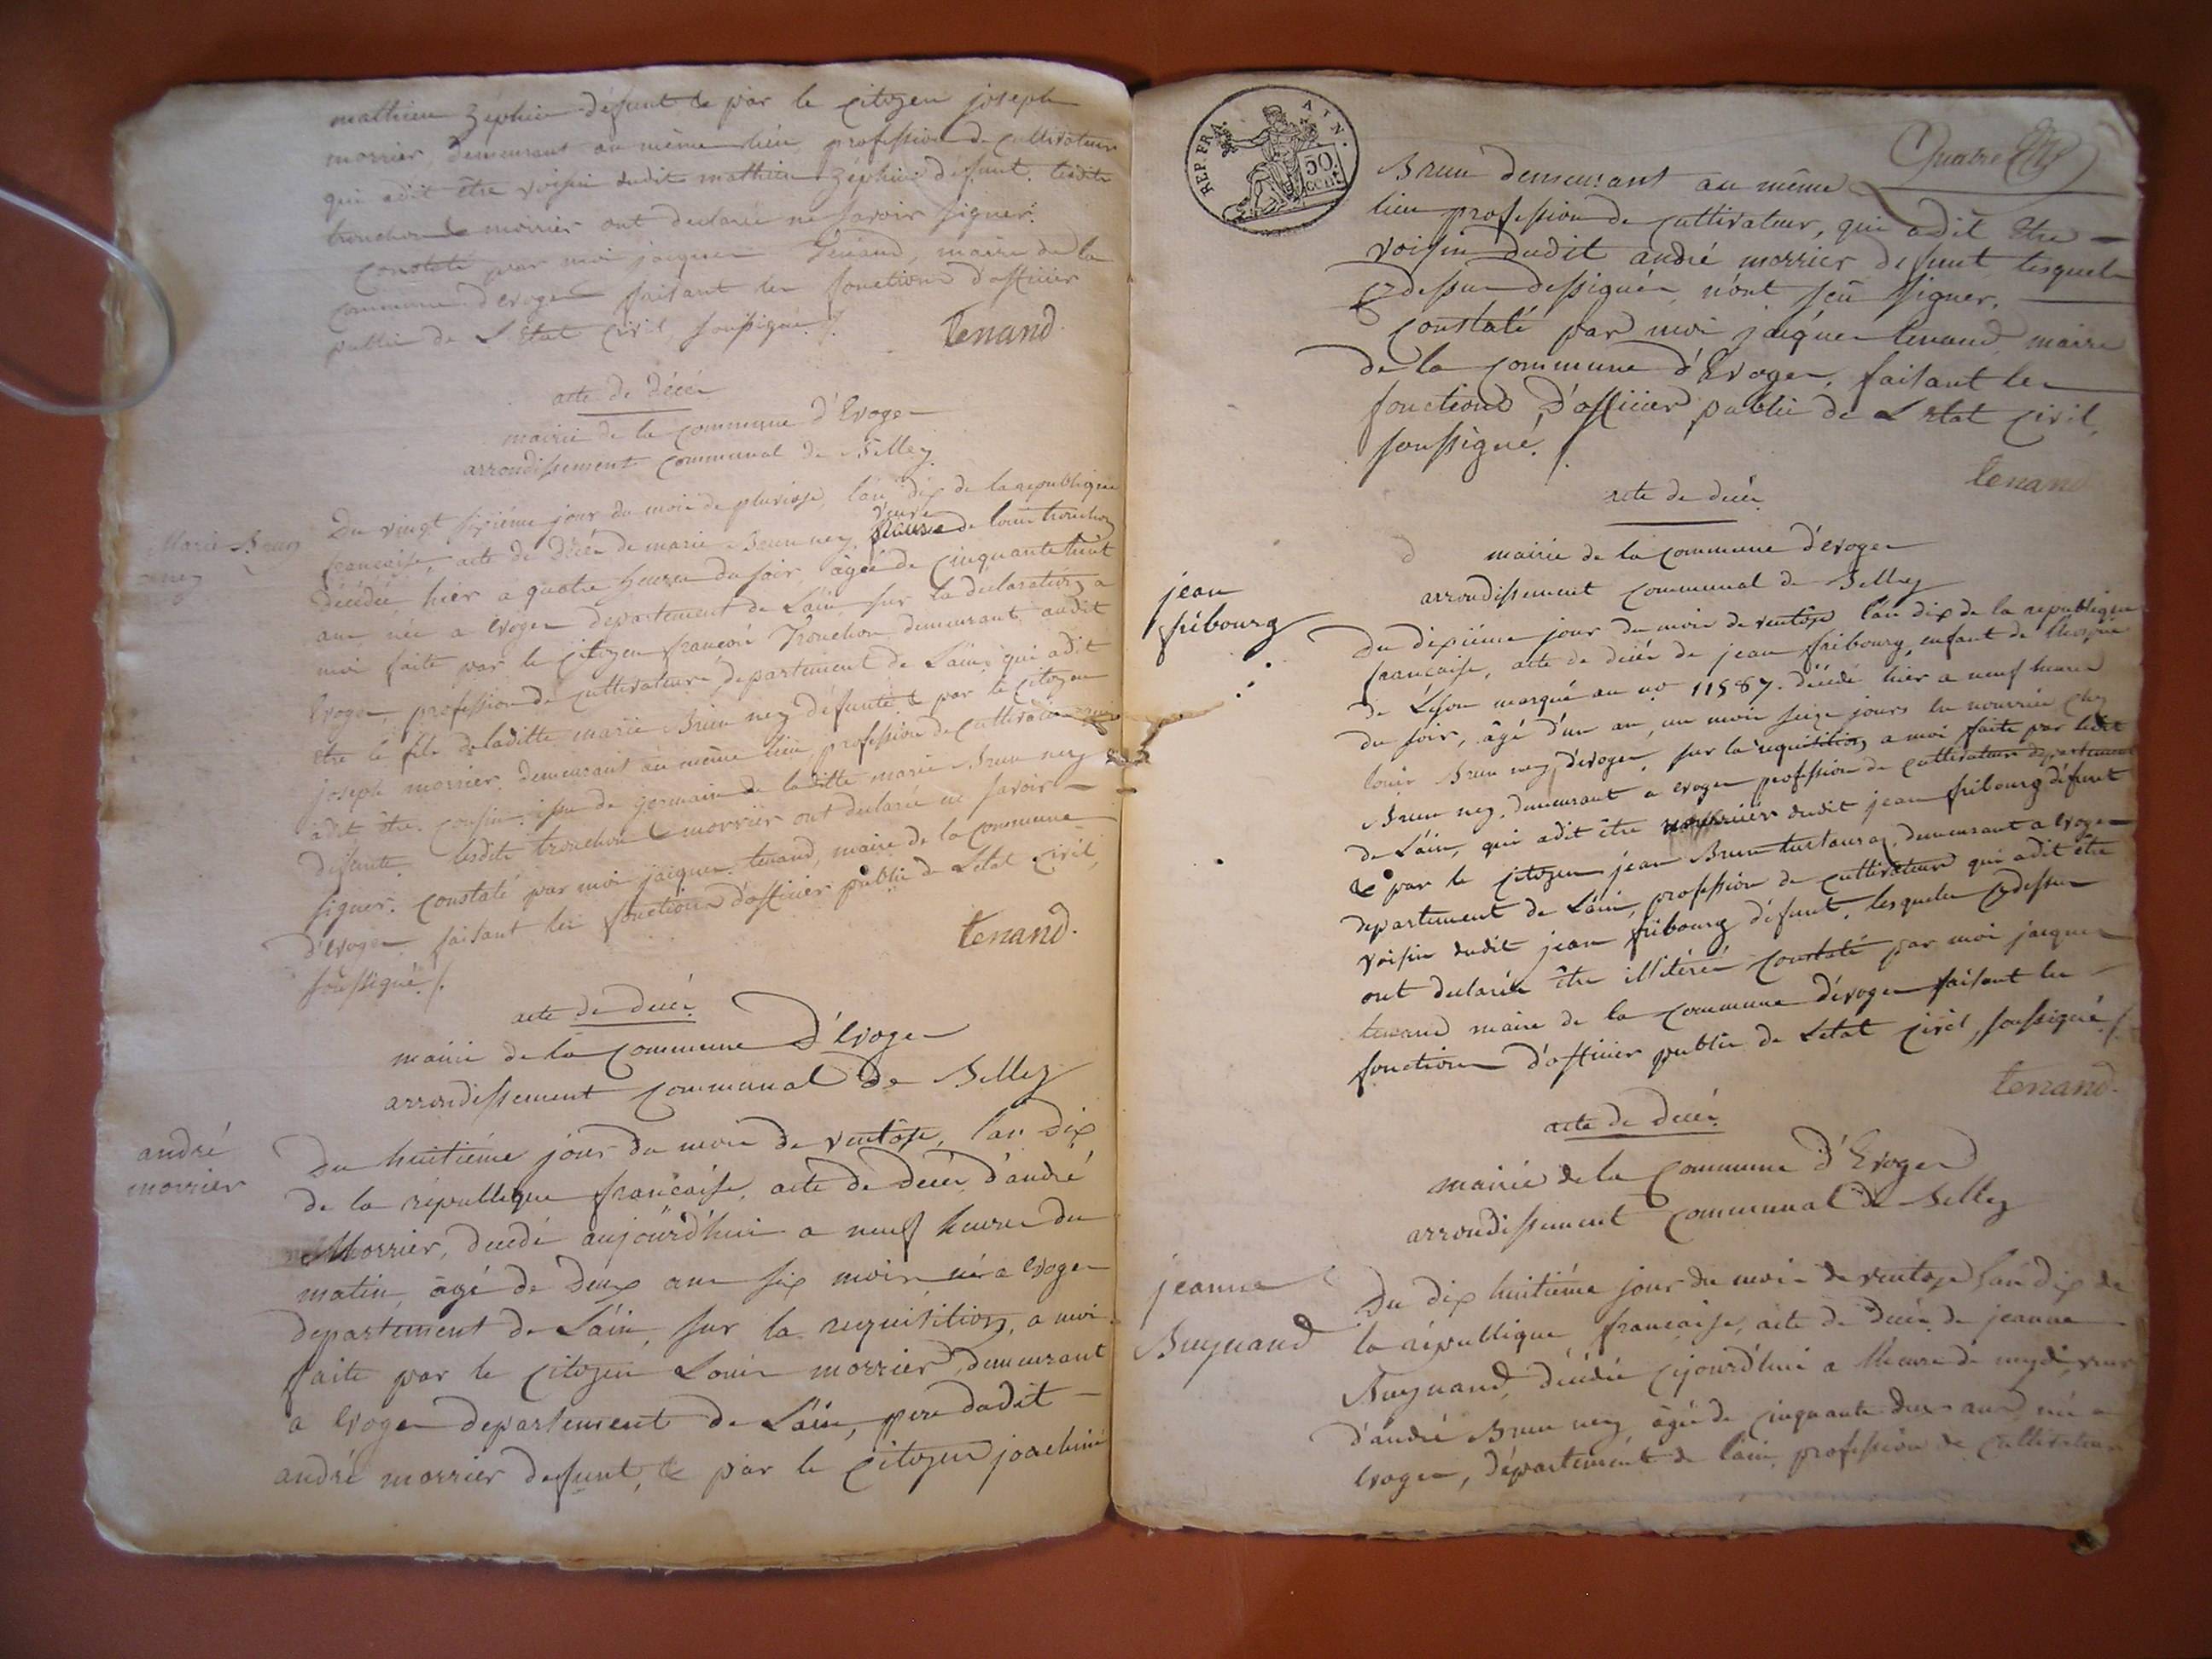 mathieu Zéphirin défunt & par le Citoyen joseph
morrier, demeurant au même lieu profession de cultivateur
qui adit être voisin dudit mathieu Zéphirin défunt. lesdits
tronchon & morrier ont declaré ne savoir signer.
Constaté par moi jacques Tenand, maire de la
commune d'evoges faisant les fonctions d'officier
public de L'Etat Civil, soussigné ./.
tenand
acte de décés
mairie de la commune d'Evoges
arrondissement Communal de Belley.
Marie Brun
ney
Du vingt sixiéme jour du mois de pluviose, l'an dix de la republique
veuve
française, acte de Décés de marie Brun ney, de louis tronchon
décédée hier a quatre heures du soir, agée de cinquante huit
ans née a Evoges departement de L'ain, sur la declaration a
moi faite par le citoyen françois Tronchon demeurant audit
Evoges, profession de cultivateur, departement de L'ain, qui adit
être le fils de laditte marie Brun ney défunte & par le citoyen
joseph morrier, demeurant au même lieu, profession de cultivateur qui
adit être cousin issu de germain de laditte marie Brun ney
défunte. lesdits tronchon & morrier ont declaré ne savoir
signer. Constaté par moi jacques tenand, maire de la commune
d'evoges faisant les fonctions d'officier public de L'etat Civil,
soussigné ./.
tenand.
acte de decés
mairie de la Commune D'Evoges
arrondissement Communal De Belley
andré
morrier
Du huitiéme jour du mois de ventôse, l'an Dix
de la république française, acte de Decés, d'andré
Morrier, decedé aujourd'hui a neuf heures du
matin, âgé de Deux ans six mois né a Evoges
departement de L'ain, sur la requisition, a moi
faite par le Citoyen Louis morrier, demeurant
a Evoges departement de L'ain, pere dudit
andré morrier defunt, & par le Citoyen joachim
REP. FRA.
ATN.
50
cent.
Quatre
Brun demeurant au même
lieu profession de cultivateur, qui adit être
voisin dudit andré morrier defunt, lesquels
cydessus dessignés, n'ont sçu signer.
Constaté par moi jacques tenand maire
de la commune d'Evoges, faisant les
fonctions d'officier public de L'etat Civil,
soussigné ./.
tenand
acte de decés
mairie de la commune d'evoges
arrondissement Communal de Belley
jean
fribourg
Du dixiéme jour du mois de ventôse l'an dix de la republique
française, acte de decés de jean fribourg, enfant de lhospice
de Lyon marqué au no 11587. décédé hier a neuf heures
du soir, âgé d'un an, un mois seize jours en nourrice chez
louis Brun ney, d'evoges, sur la requisition a moi faite par ledit
Brun ney, demeurant a evoges profession de cultivateur departement
de L'ain, qui adit être nourricier dudit jean fribourg défunt
& par le citoyen jean Brun, demeurant a Evoges
departement de L'ain, profession de cultivateur qui adit être
voisin dudit jean fribourg défunt, lesquels cydessus
ont declaré être illitéré Constaté par moi jacques
tenand maire de la commune d'evoges faisant les
fonctions d'officier public de L'etat Civil, soussigné ./.
tenand.
acte de decés
mairie de la Commune d'Evoges
arrondissement Communal de Belley
jeanne
Buynand
Du dix huitiéme jour du mois de ventôse l'an dix de
la république française, acte de decés de jeanne
Buynand, décédée cejourd'hui a l'heure de mydi, veuve
d'andré Brun ney, âgée de cinquante deux ans, née a
Evoges, département de l'ain, profession de cultivateur